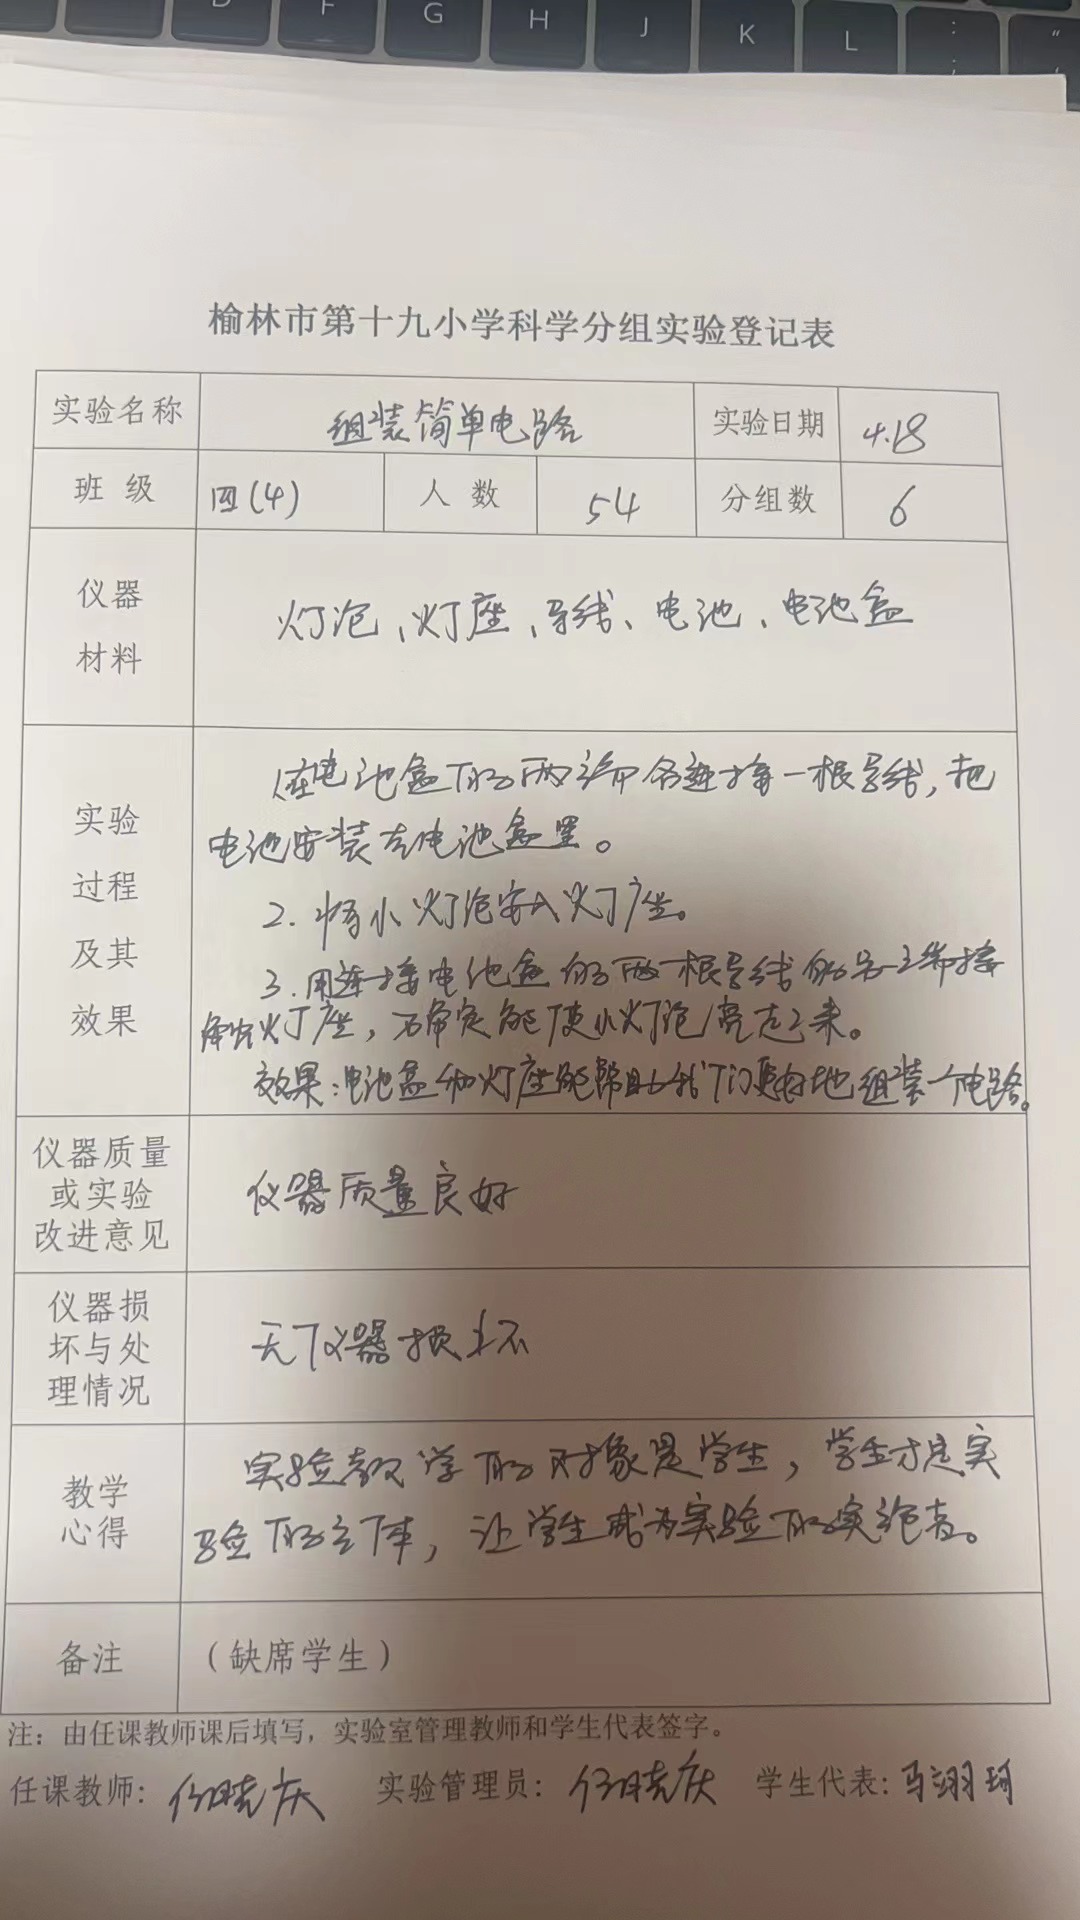 D F G H J K L : ; " '
榆林市第十九小学科学分组实验登记表
实验名称 组装简单电路 实验日期 4.18
班级 四(4) 人数 54 分组数 6
仪器
材料
灯泡、灯座、导线、电池、电池盒
实验
过程
及其
效果
在电池盒的两端各连接一根导线,把
电池安装在电池盒里。
2.将小灯泡安入灯座。
3.用连接电池盒的两根导线的另一端接
灯座,确定能使小灯泡亮起来。
效果:电池盒和灯座能帮助我们更好地组装一个电路。
仪器质量
或实验
改进意见
仪器质量良好
仪器损
坏与处
理情况
无仪器损坏
教学
心得
实验教学的对象是学生,学生才是实
验的主体,让学生成为实验的实施者。
备注 (缺席学生)
注:由任课教师课后填写,实验室管理教师和学生代表签字。
任课教师:任晓庆 实验管理员:任晓庆 学生代表:马翊珂